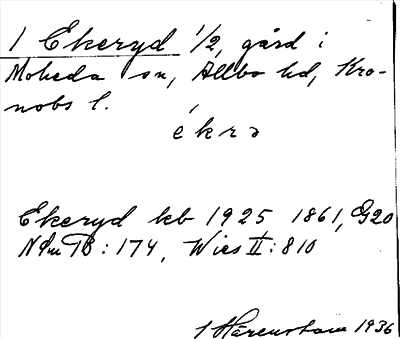 1 Ekeryd 1/2, gård i
Moheda sn, Allbo hd, Kro-
nobs l.
ékrə
Ekeryd kb 1925 1861, G20
: 174, Wies II: 810
1936